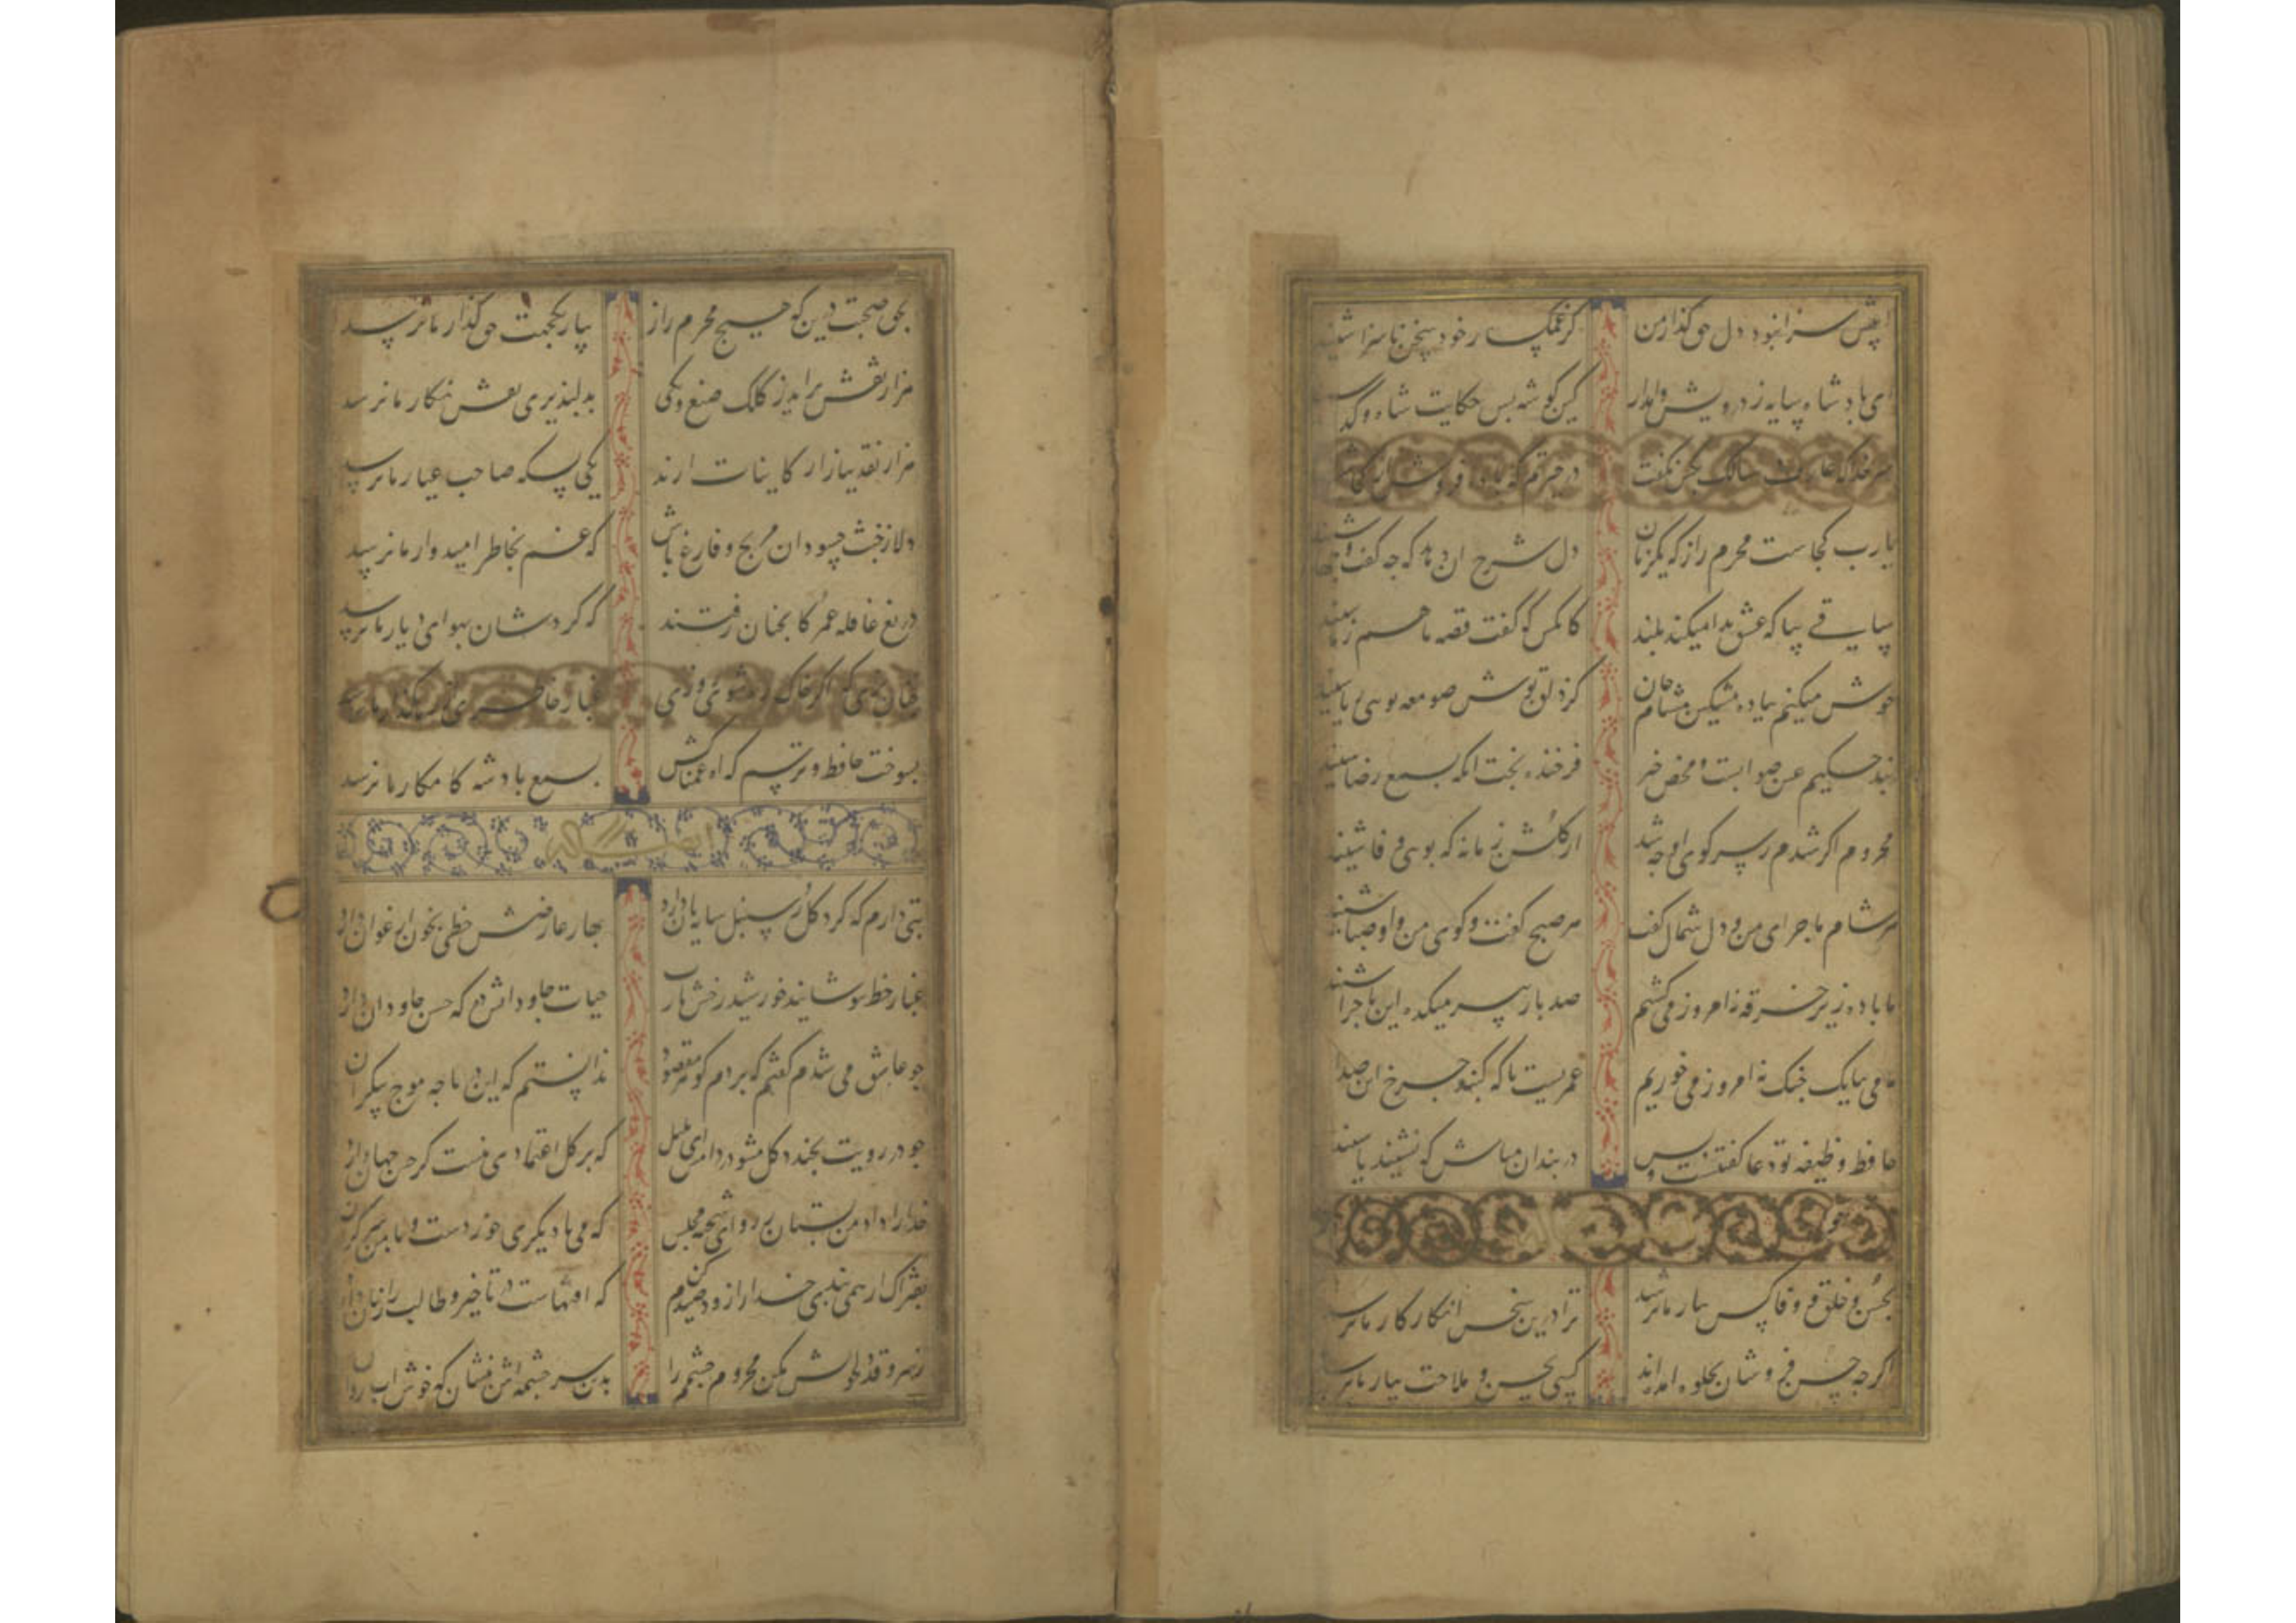 اینش سزا نبود دل حق گذار من کز غمگسار خود سخن ناسزا شنید
ای پادشاه سایه ز درویش وامدار کین گوشه بس حکایت شاه و گدا
سر خدا که عارف سالک بکس نگفت در حیرتم که باده فروش از کجا
یارب کجاست محرم راز که یکزمان دل شرح ان دهد که جه گفت و جها شنید
ساقی بیا که عشق ندا میکند بلند کانکس که گفت قصه ما هم ز ما شنید
خوش میکنم بباده مشکین مشام جان کز دلق پوش صومعه بوی ریا شنید
پند حکیم عین صوابست و محض خیر فرخنده بخت انکه بسمع رضا شنید
محروم اگر شدم ز سر کوی او جه شد از گلشن زمانه که بوی وفا شنید
هر شام ماجرای من و دل شمال گفت هر صبح گفت و گوی من و او صبا شنید
ما باده زیر خرقه نه امروز می کشیم صد بار پیر میکده این ماجرا شنید
ما می ببانک جنک نه امروز می خوریم عمریست تا که گنبد جرخ این صدا
حافظ وظیفه تو دعا گفتنست و بس در بند ان مباش که نشنید یا شنید
بحسن و خلق و وفا کس بیار ما نرسد ترا درین سخن انکار کار ما نرسد
اگر جه حسن فروشان بجلوه امده اند کسی بحسن و ملاحت بیار ما نرسد
بحق صحبت دیرین که هیچ محرم راز بیار یکجهت حق گذار ما نرسد
هزار نقش براید ز کلک صنع و یکی بدلپذیری نقش نگار ما نرسد
هزار نقد ببازار کاینات ارند یکی بسکه صاحب عیار ما نرسد
دلا ز خبث حسودان مرنج و فارغ باش که غم بخاطر امیدوار ما نرسد
دریغ قافله عمر کانچنان رفتند که گردشان بهوای دیار ما نرسد
جنان بزی که اگر خاک ره شوی غبار خاطری از رهگذار ما نرسد
بسوخت حافظ و ترسم که بسمع بادشه کامکار ما نرسد
بتی دارم که گرد گل ز سنبل سایبان دارد بهار عارضش خطی بخون ارغوان دارد
غبار خط بپوشانید خورشید رخش یارب حیات جاودانش ده که حسن جاودان دارد
جو عاشق می شدم گفتم که بردم گوهر مقصود ندانستم که این دریا جه موج بیکران
جو در رویت بخندد گل مشو در دامش ای بلبل که بر گل اعتمادی نیست گر حسن جهان دارد
خدا را داد من بستان ازو ای شحنه مجلس که می با دیگری خوردست و با من سر گران
بفتراک ار همی بندی خدا را زود صیدم کن که افتهاست در تاخیر و طالب را زیان دارد
ز سرو قد دلجویش مکن محروم جشمم را بدین سر جشمه اش بنشان که خوش ابی روان